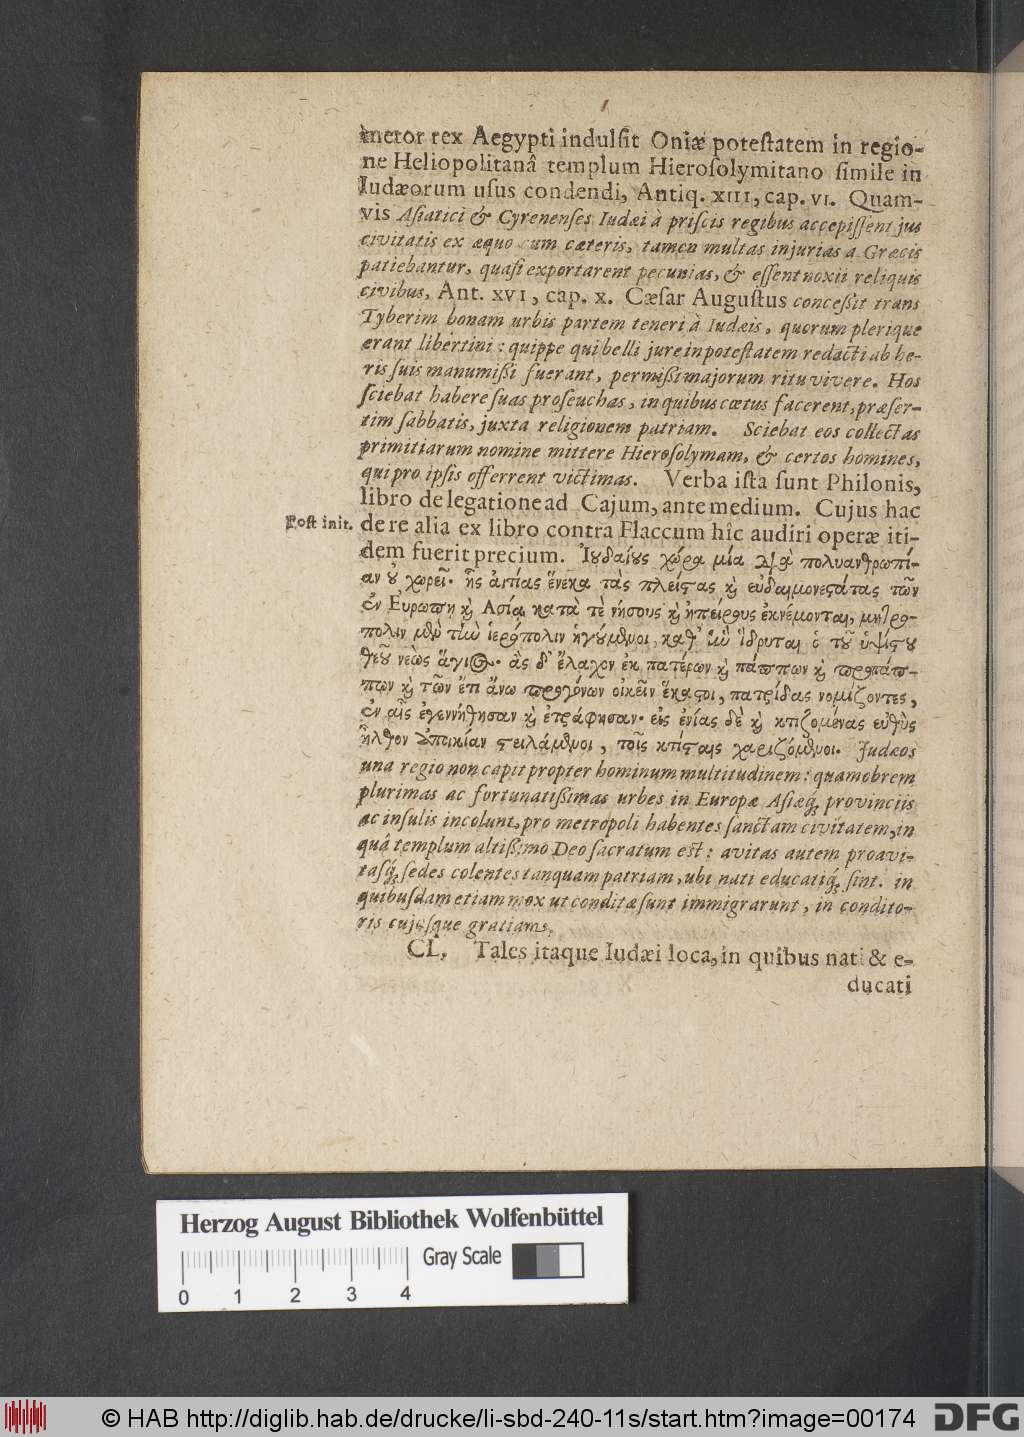 metor rex Aegypti indulsit Oniæ potestatem in regio-
ne Heliopolitanâ templum Hierosolymitano simile in
Iudæorum usus condendi, Antiq. XIII, cap. VI. Quam-
vis Asiatici & Cyrenenses Iudæi à priscis regibus accepissent jus
civitatis ex æquo cum cæteris, tamen multas injurias a Græcis
patiebantur, quasi exportarent pecunias, & essent noxii reliquis
civibus, Ant. XVI, cap. X. Cæsar Augustus concessit trans
Tyberim bonam urbis partem teneri à Iudæis, quorum plerique
erant libertini: quippe qui belli jure in potestatem redacti ab he-
ris suis manumissi fuerant, permissi majorum ritu vivere. Hos
sciebat habere suas proseuchas, in quibus cœtus facerent, præser-
tim sabbatis, juxta religionem patriam. Sciebat eos collectas
primitiarum nomine mittere Hierosolymam, & certos homines,
qui pro ipsis offerrent victimas. Verba ista sunt Philonis,
libro de legatione ad Cajum, ante medium. Cujus hac
Post init. de re alia ex libro contra Flaccum hîc audiri operæ iti-
dem fuerit precium. Ἰουδαίους χώρα μία διὰ πολυανθρωπί-
αν οὐ χωρεῖ· ἧς αἰτίας ἕνεκα τὰς πλείστας καὶ εὐδαιμονεστάτας τῶν
ἐν Εὐρώπῃ καὶ Ἀσίᾳ κατὰ τὲ νήσους καὶ ἠπείρους ἐκνέμονται, μητρό-
πολιν μὲν τὴν ἱερόπολιν ἡγούμενοι, καθ' ἣν ἵδρυται ὁ τοῦ ὑψίστου
θεοῦ νεὼς ἅγιος· ἃς δ' ἔλαχον ἐκ πατέρων καὶ πάππων καὶ προπάπ-
πων καὶ τῶν ἔτι ἄνω προγόνων οἰκεῖν ἕκαστοι, πατρίδας νομίζοντες,
ἐν αἷς ἐγεννήθησαν καὶ ἐτράφησαν· εἰς ἐνίας δὲ καὶ κτιζομένας εὐθὺς
ἦλθον ἀποικίαν στειλάμενοι, τοῖς κτίσταις χαριζόμενοι. Judæos
una regio non capit propter hominum multitudinem: quamobrem
plurimas ac fortunatissimas urbes in Europæ Asiæq; provinciis
ac insulis incolunt, pro metropoli habentes sanctam civitatem, in
quâ templum altissimo Deo sacratum est: avitas autem proavi-
tasq; sedes colentes tanquam patriam, ubi nati educatiq; sint. in
quibusdam etiam mox ut conditæ sunt immigrarunt, in condito-
ris cujusque gratiam.
CL. Tales itaque Iudæi loca, in quibus nati & e-
ducati
Herzog August Bibliothek Wolfenbüttel
Gray Scale
0 1 2 3 4
© HAB http://diglib.hab.de/drucke/li-sbd-240-11s/start.htm?image=00174 DFG